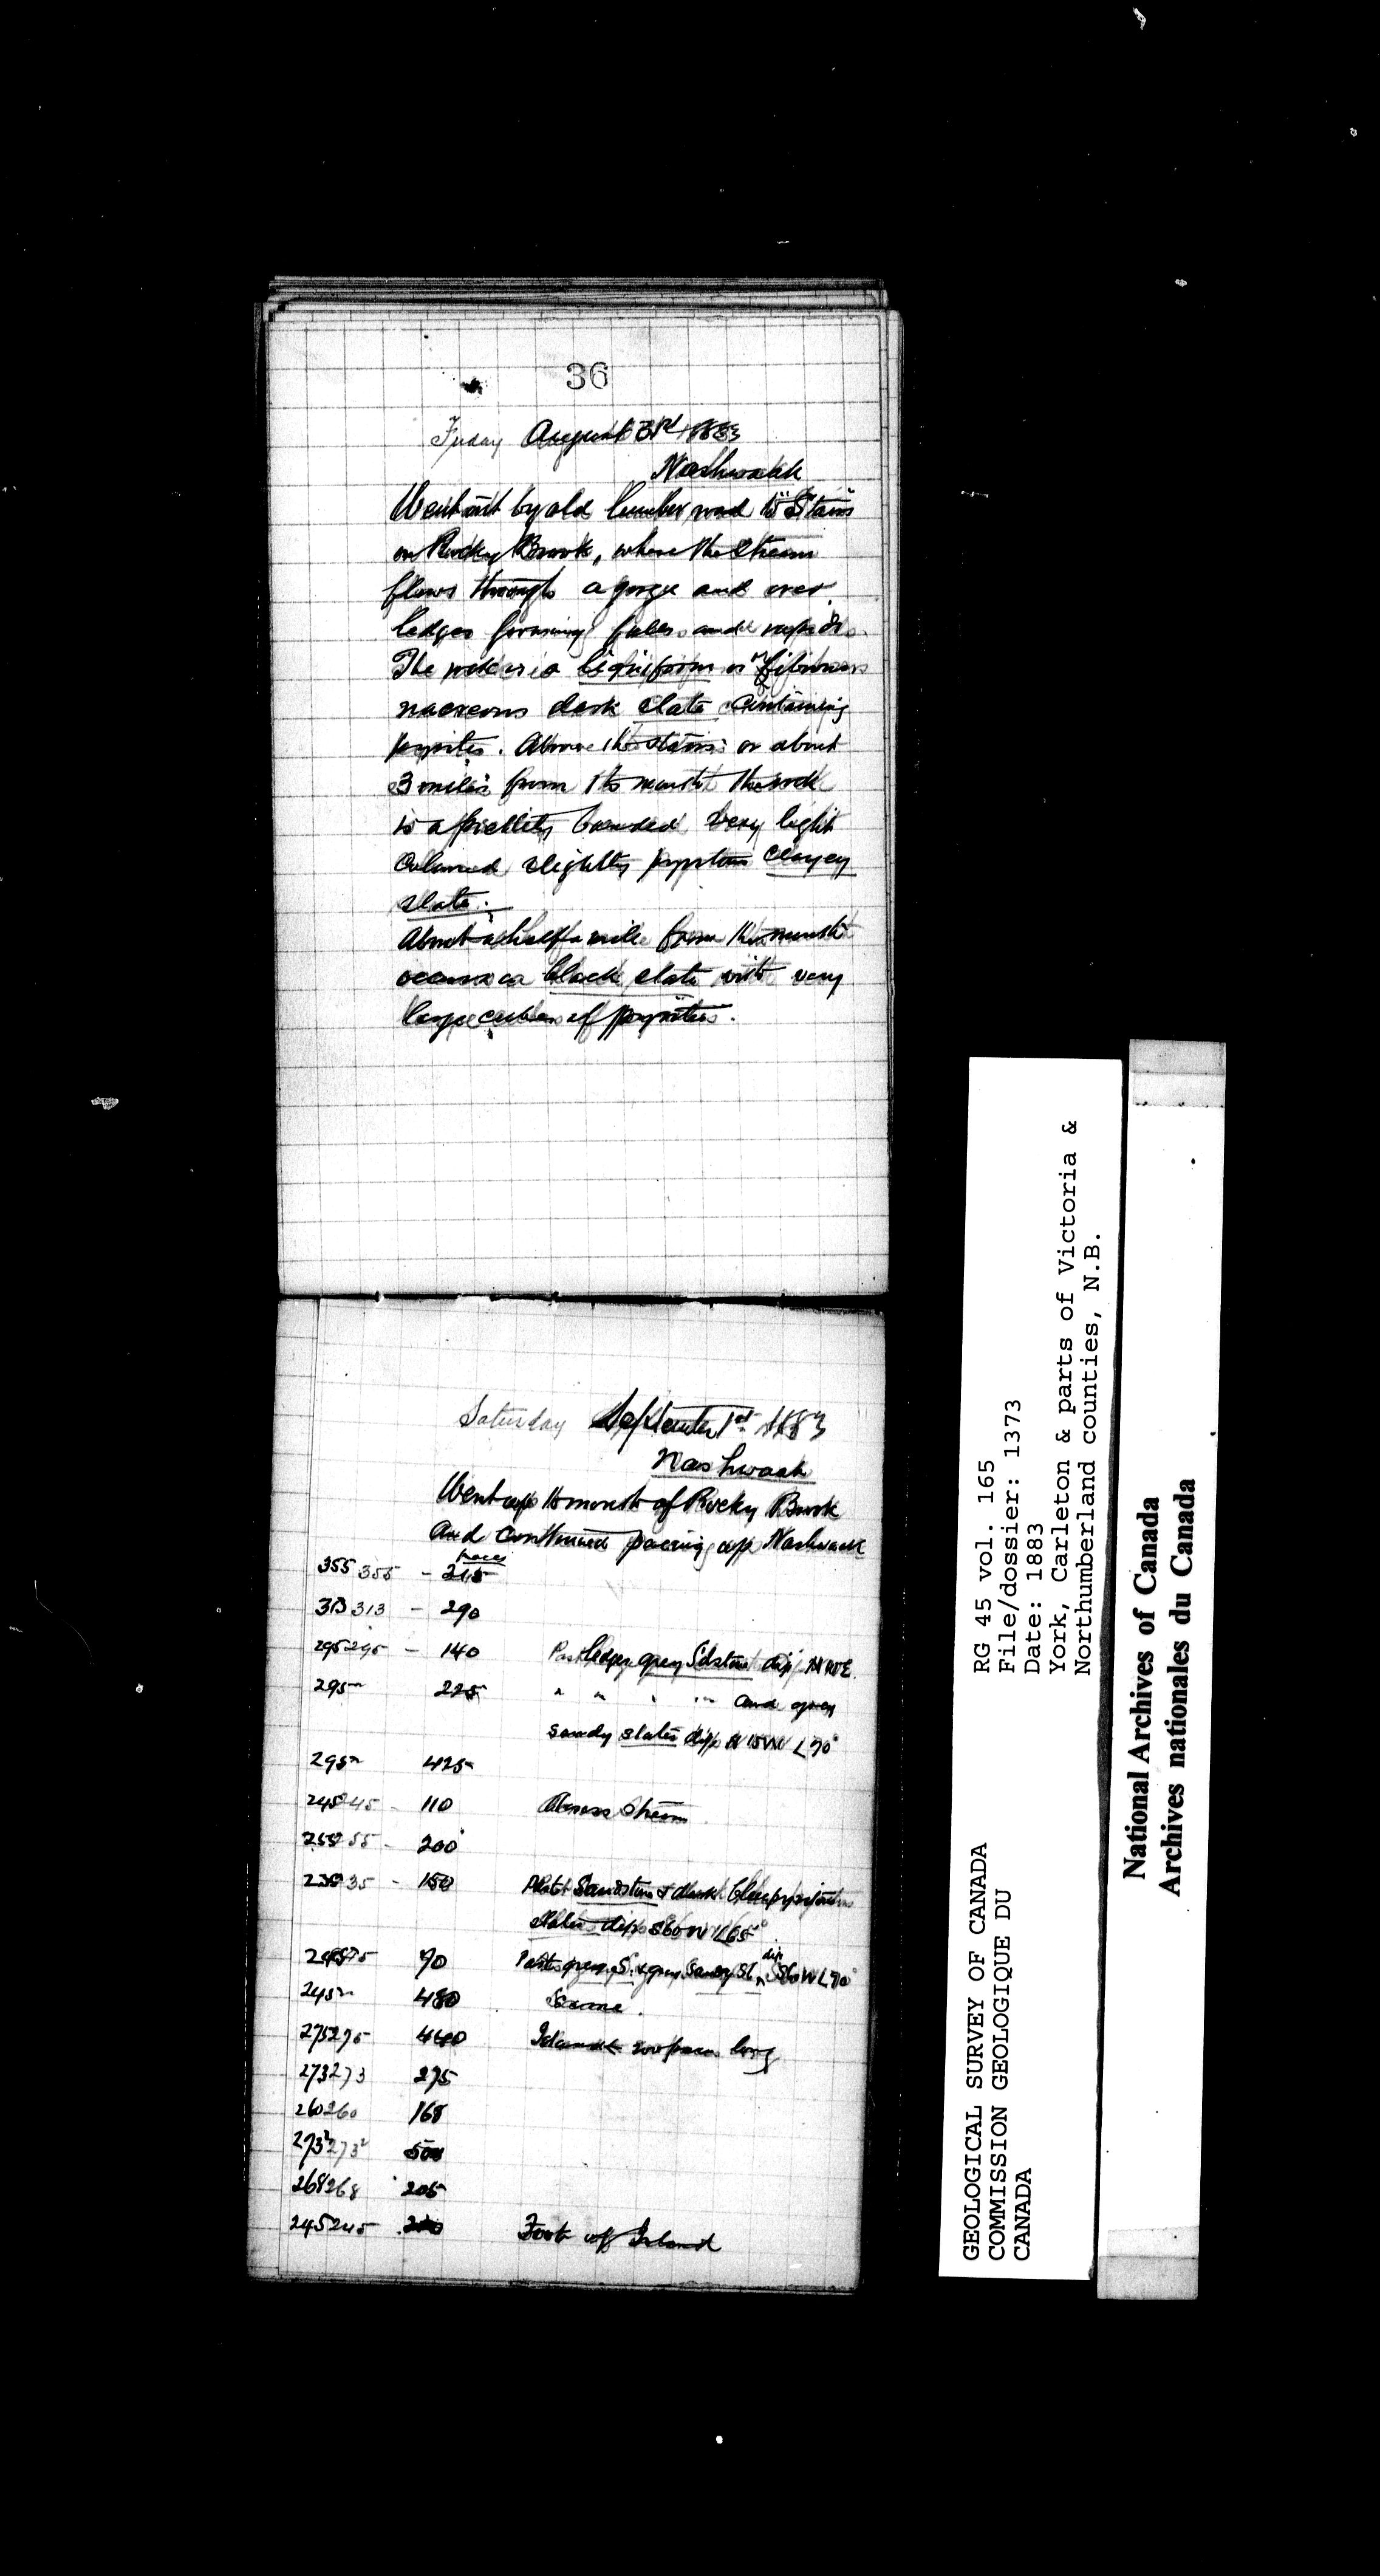 36
Friday August 31st 1883
Nashwaak
Went out by old lumber road to "Stairs"
on Rocky Brook, where the stream
flows through a gorge and over
ledges forming falls and rapids.
The rock is a ligniform or fibrous
nacreous dark slate containing
pyrites. Above the stairs or about
3 miles from the mouth the rock
is a banded very light
coloured slightly clayey
slate.
About a half a mile from the mouth
occurs a black slate with very
large cubes of pyrites.
Saturday September 1st 1883
Nashwaak
Went up to mouth of Rocky Brook
and continued pacing up Nashwaak
paces
355 355 - 215
313 313 - 290
295 295 - 140 Past ledges grey Sdstone dip
295 225 " " " " and grey
sandy slates dip N 15 W L 70°
295 425
245 245 - 110 Across Stream
255 255 - 200
235 235 - 150 Sandstone & dark blue
slates dip S 60 W L 65°
90 grey S. & grey sandy Sl. dip S 60 W L 70°
245 480 Same.
275 275 440 Island 200 paces long
273 273 275
260 260 168
273² 273² 500
268 268 205
245 245 200 Foot of Island
GEOLOGICAL SURVEY OF CANADA
COMMISSION GEOLOGIQUE DU
CANADA
RG 45 vol. 165
File/dossier: 1373
Date: 1883
York, Carleton & parts of Victoria &
Northumberland counties, N.B.
National Archives of Canada
Archives nationales du Canada